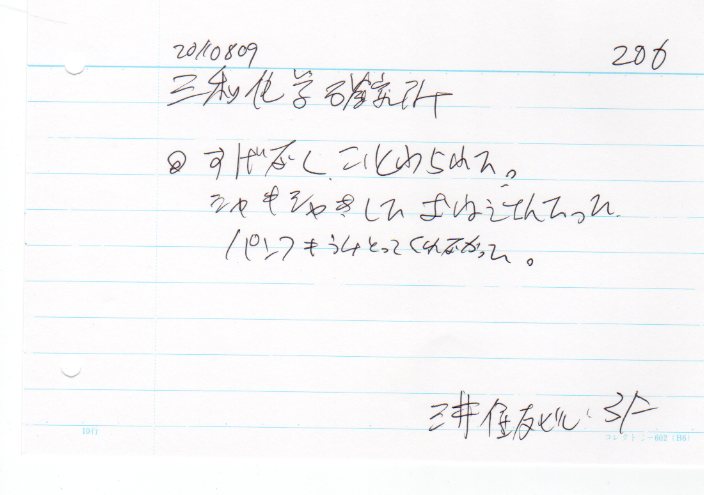 20110809
206
三和化学研究所
◎ すげなく ことわられた。
シャキシャキした おねえさんだった
パンフもうけとってくれなかった。
三井住友ビル 3F
1011
コレクト C-602 (B6)